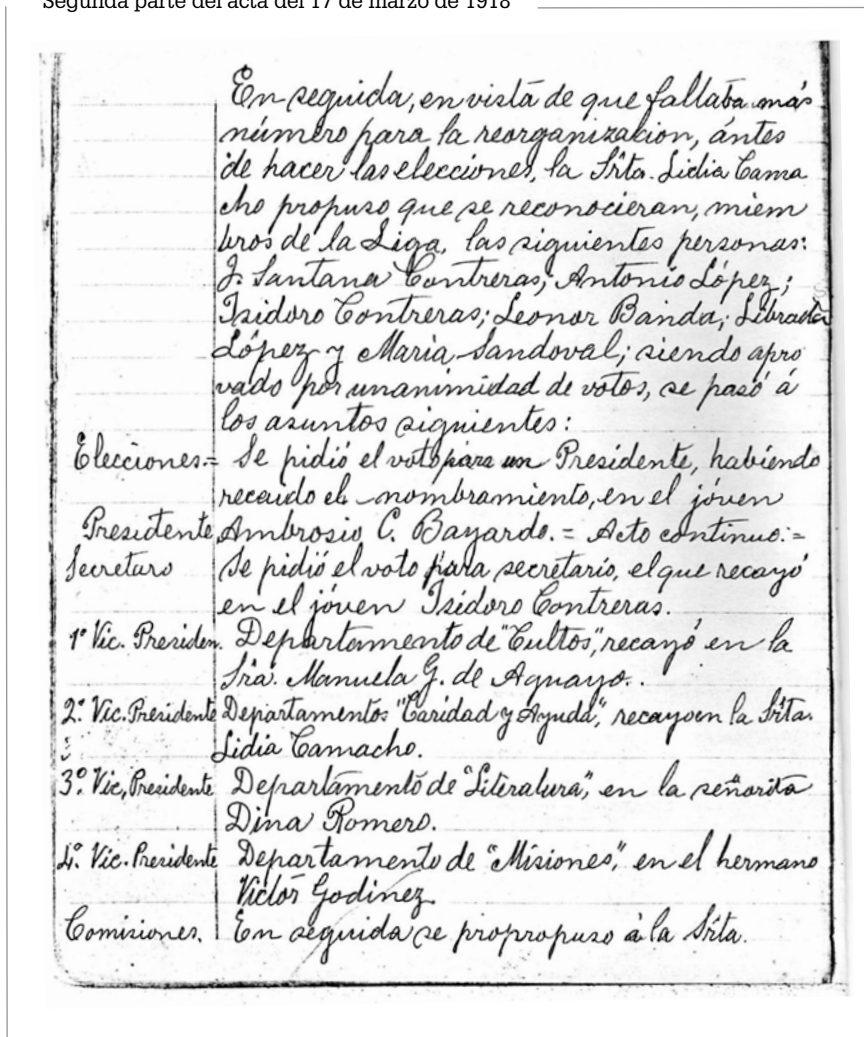 Segunda parte del acta del 17 de marzo de 1918
En seguida, en vista de que faltaba más
número para la reorganización, ántes
de hacer las elecciones, la Srita. Lidia Cama
cho propuso que se reconocieran, miem
bros de la Liga, las siguientes personas:
J. Santana Contreras; Antonio López;
Isidoro Contreras; Leonor Banda; Librada
López y Maria Sandoval; siendo apro
vado por unanimidad de votos, se pasó á
los asuntos siguientes:
Elecciones.= Se pidió el voto para un Presidente, habiendo
recaido el nombramiento, en el jóven
Presidente Ambrosio C. Bayardo. = Acto continuo: =
Secretaro Se pidió el voto para secretario, el que recayó
en el jóven Isidoro Contreras.
1º Vic. Presiden. Departamento de "Cultos", recayó en la
Sra. Manuela G. de Aguayo.
2º. Vic. Presidente Departamentos "Caridad y Ayuda", recayo en la Srita.
Lidia Camacho.
3º. Vic, Presidente Departamento de "Literalura", en la señorita
Dina Romero.
4º. Vic. Presidente Departamento de "Misiones", en el hermano
Victór Godinez.
Comisiones. En seguida se propropuso á la Srita.